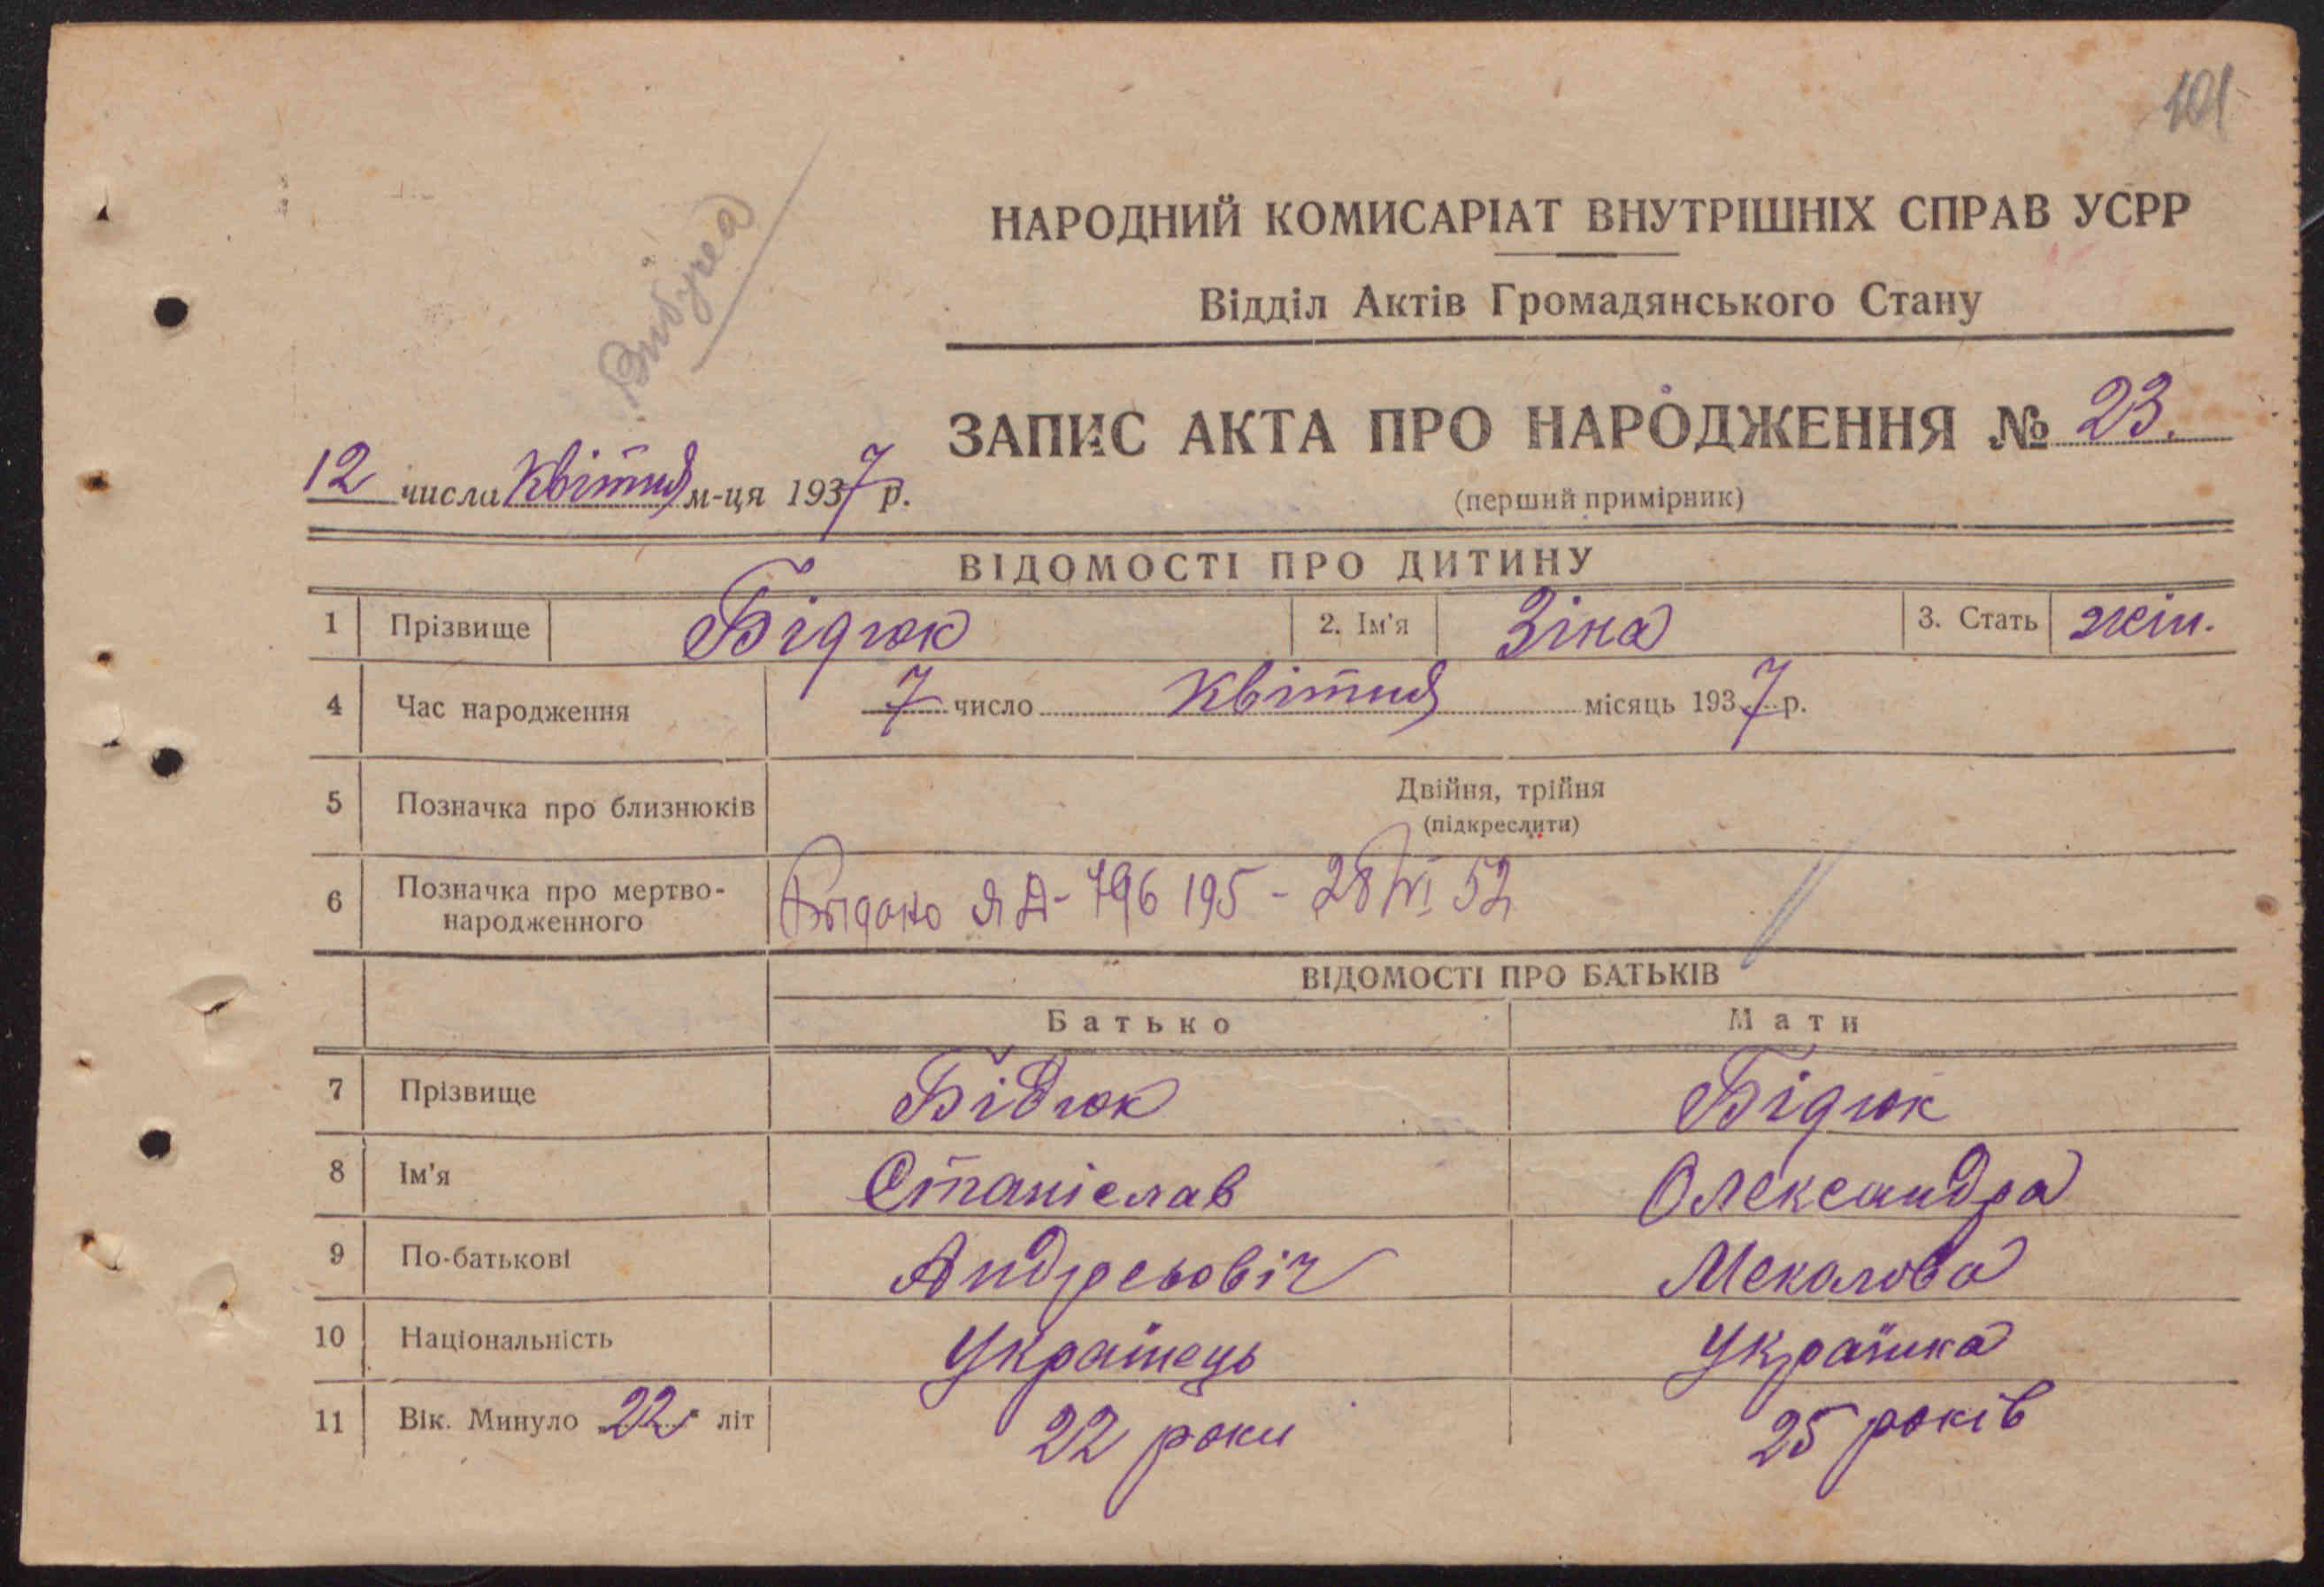 101
НАРОДНИЙ КОМИСАРІАТ ВНУТРІШНІХ СПРАВ УСРР
Відділ Актів Громадянського Стану
ЗАПИС АКТА ПРО НАРОДЖЕННЯ № 23.
12 числа Квітня м-ця 1937 р.
(перший примірник)
ВІДОМОСТІ ПРО ДИТИНУ
1 Прізвище Бідюк 2. Ім'я Зіна 3. Стать жін.
4 Час народження 7 число Квітня місяць 1937 р.
5 Позначка про близнюків Двійня, трійня
(підкреслити)
6 Позначка про мертво-
народженного
Выдано ЯА-796195 - 28/VI 52
ВІДОМОСТІ ПРО БАТЬКІВ
Батько Мати
7 Прізвище Бідюк Бідюк
8 Ім'я Станіслав Олександра
9 По-батькові Андреьовіч
10 Національність Українець Українка
11 Вік. Минуло 22 літ 22 роки 25 років